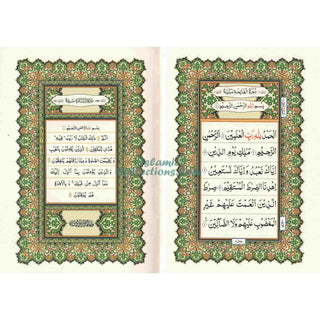 سُوْرَةُ الْفَاتِحَةِ مَكِّيَّةٌ
بِسْمِ اللهِ الرَّحْمٰنِ الرَّحِيْمِ
اَلْحَمْدُ لِلّٰهِ رَبِّ الْعٰلَمِيْنَ الرَّحْمٰنِ
الرَّحِيْمِ مٰلِكِ يَوْمِ الدِّيْنِ
اِيَّاكَ نَعْبُدُ وَ اِيَّاكَ نَسْتَعِيْنُ
اِهْدِنَا الصِّرَاطَ الْمُسْتَقِيْمَ صِرَاطَ
الَّذِيْنَ اَنْعَمْتَ عَلَيْهِمْ غَيْرِ
الْمَغْضُوْبِ عَلَيْهِمْ وَلَا الضَّآلِّيْنَ
بِسْمِ اللهِ الرَّحْمٰنِ الرَّحِيْمِ
الٓمّٓ ذٰلِكَ الْكِتٰبُ لَا رَيْبَ فِيْهِ
هُدًى لِّلْمُتَّقِيْنَ الَّذِيْنَ يُؤْمِنُوْنَ بِالْغَيْبِ
وَيُقِيْمُوْنَ الصَّلٰوةَ وَمِمَّا رَزَقْنٰهُمْ يُنْفِقُوْنَ
وَالَّذِيْنَ يُؤْمِنُوْنَ بِمَآ اُنْزِلَ اِلَيْكَ وَ
مَآ اُنْزِلَ مِنْ قَبْلِكَ وَبِالْاٰخِرَةِ
هُمْ يُوْقِنُوْنَ